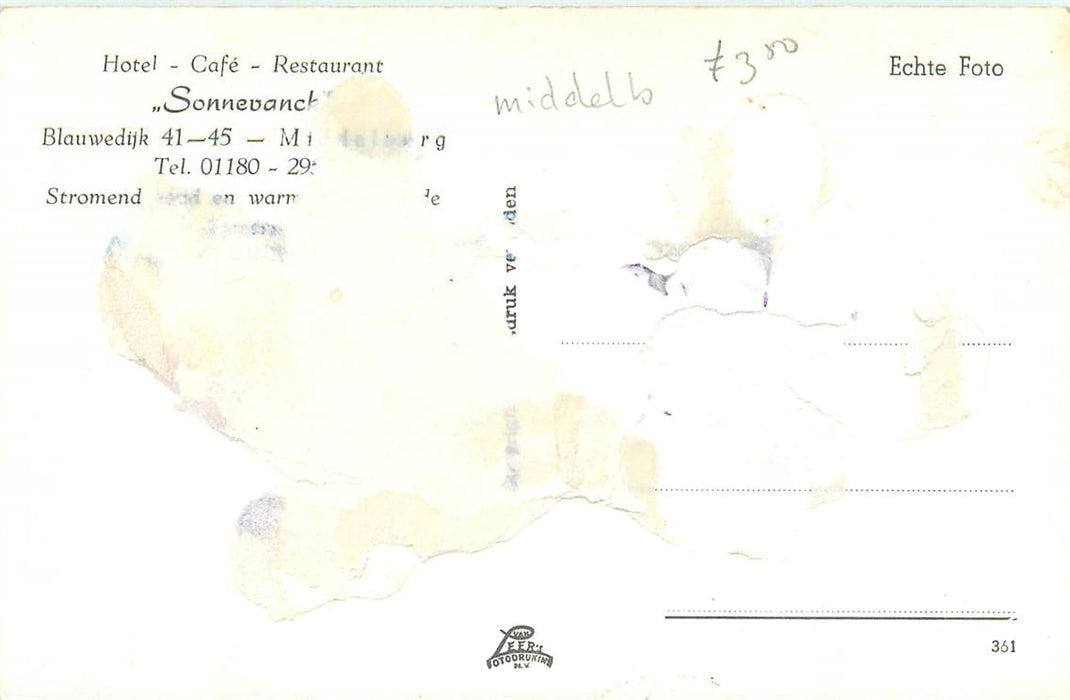 Hotel - Café - Restaurant
„Sonnevanck
Blauwedijk 41—45 — Middelburg
Tel. 01180 - 29
Stromend en warm
middelb
ƒ3 00
Echte Foto
druk
VAN
LEER's
FOTODRUKIND.
N.V.
361